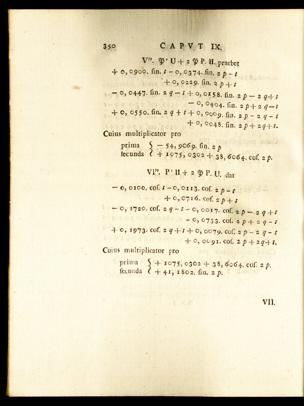 350 CAPVT IX.
V°. 𝔓' U + 2 𝔓 P. U. praebet
+ 0, 0900. ſin. t − 0, 0374. ſin. 2 p − t
+ 0, 0229. ſin. 2 p + t
− 0, 0447. ſin. 2 q − t + 0, 0158. ſin. 2 p − 2 q + t
− 0, 0404. ſin. 2 p + 2 q − t
+ 0, 0550. ſin. 2 q + t + 0, 0009. ſin. 2 p − 2 q − t
+ 0, 0048. ſin. 2 p + 2 q + t.
Cuius multiplicator pro
prima { − 54, 9069. ſin. 2 p
ſecunda { + 1075, 0302 + 38, 6064. coſ. 2 p.
VI°. P' U + 2 𝔓 P. U. dat
− 0, 0100. coſ. t − 0, 0113. coſ. 2 p − t
+ 0, 0716. coſ. 2 p + t
− 0, 1720. coſ. 2 q − t − 0, 0017. coſ. 2 p − 2 q + t
− 0, 0733. coſ. 2 p + 2 q − t
+ 0, 1973. coſ. 2 q + t + 0, 0079. coſ. 2 p − 2 q − t
+ 0, 0091. coſ. 2 p + 2 q + t.
Cuius multiplicator pro
prima { + 1075, 0302 + 38, 6064. coſ. 2 p.
ſecunda { + 41, 1802. ſin. 2 p.
VII.